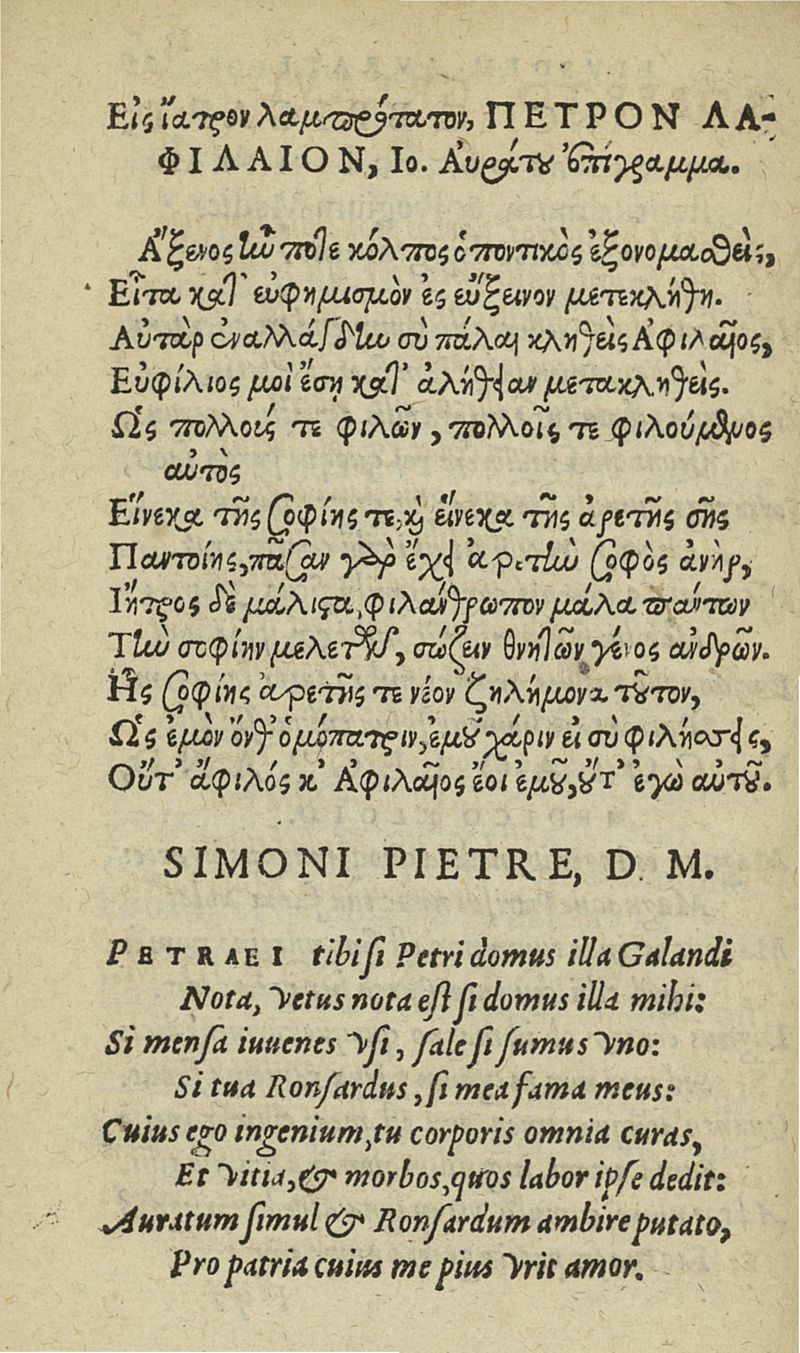 Εἰς ἰατρον λαμπρότατον, ΠΕΤΡΟΝ ΛΑ-
ΦΙΛΑΙΟΝ, Ιο. Αὐράτου ἐπίγραμμα.
Ἄξενος ἰὼ ποτε κόλπος ὁ ποντικὸς ἐξονομασθεὶς,
Εἶτα κατ' εὐφημισμὸν ἐς εὔξεινον μετεκλήθη.
Αὐτὰρ ἐναλλάγδην σὺ πάλαι κληθεὶς Ἀφιλαῖος,
Εὐφίλιος μοὶ ἔσῃ κατ' ἀλήθειαν μετακληθεὶς.
Ὡς πολλούς τε φιλῶν, πολλοῖς τε φιλούμενος
αὐτὸς
Εἵνεκα τῆς σοφίης τε, καὶ εἵνεκα τῆς ἀρετῆς σῆς
Παντοίης, πᾶσαν γὰρ ἔχει ἀρετὴν σοφὸς ἀνὴρ,
Ἰητρος δὲ μάλιστα, φιλάνθρωπον μάλα πάντων
Τὴν σοφίην μελετῶν, σώζειν θνητῶν γένος ἀνδρῶν.
Ἧς σοφίης ἀρετῆς τε νέον ζηλήμονα τοῦτον,
Ὡς ἐμὸν ὄνθ' ὁμόπατριν, ἐμοῦ χάριν εἰ σὺ φιλήσεις,
Οὔτ' ἄφιλός κ' Ἀφιλαῖος ἔοι ἐμοῦ, οὔτ' ἐγὼ αὐτοῦ.
SIMONI PIETRE, D. M.
PETRAEI tibi si Petri domus illa Galandi
Nota, vetus nota est si domus illa mihi:
Si mensa iuuenes vsi, sale si sumus vno:
Si tua Ronsardus, si mea fama meus:
Cuius ego ingenium, tu corporis omnia curas,
Et vitia, & morbos, quos labor ipse dedit:
Auratum simul & Ronsardum ambire putato,
Pro patria cuius me pius vrit amor.